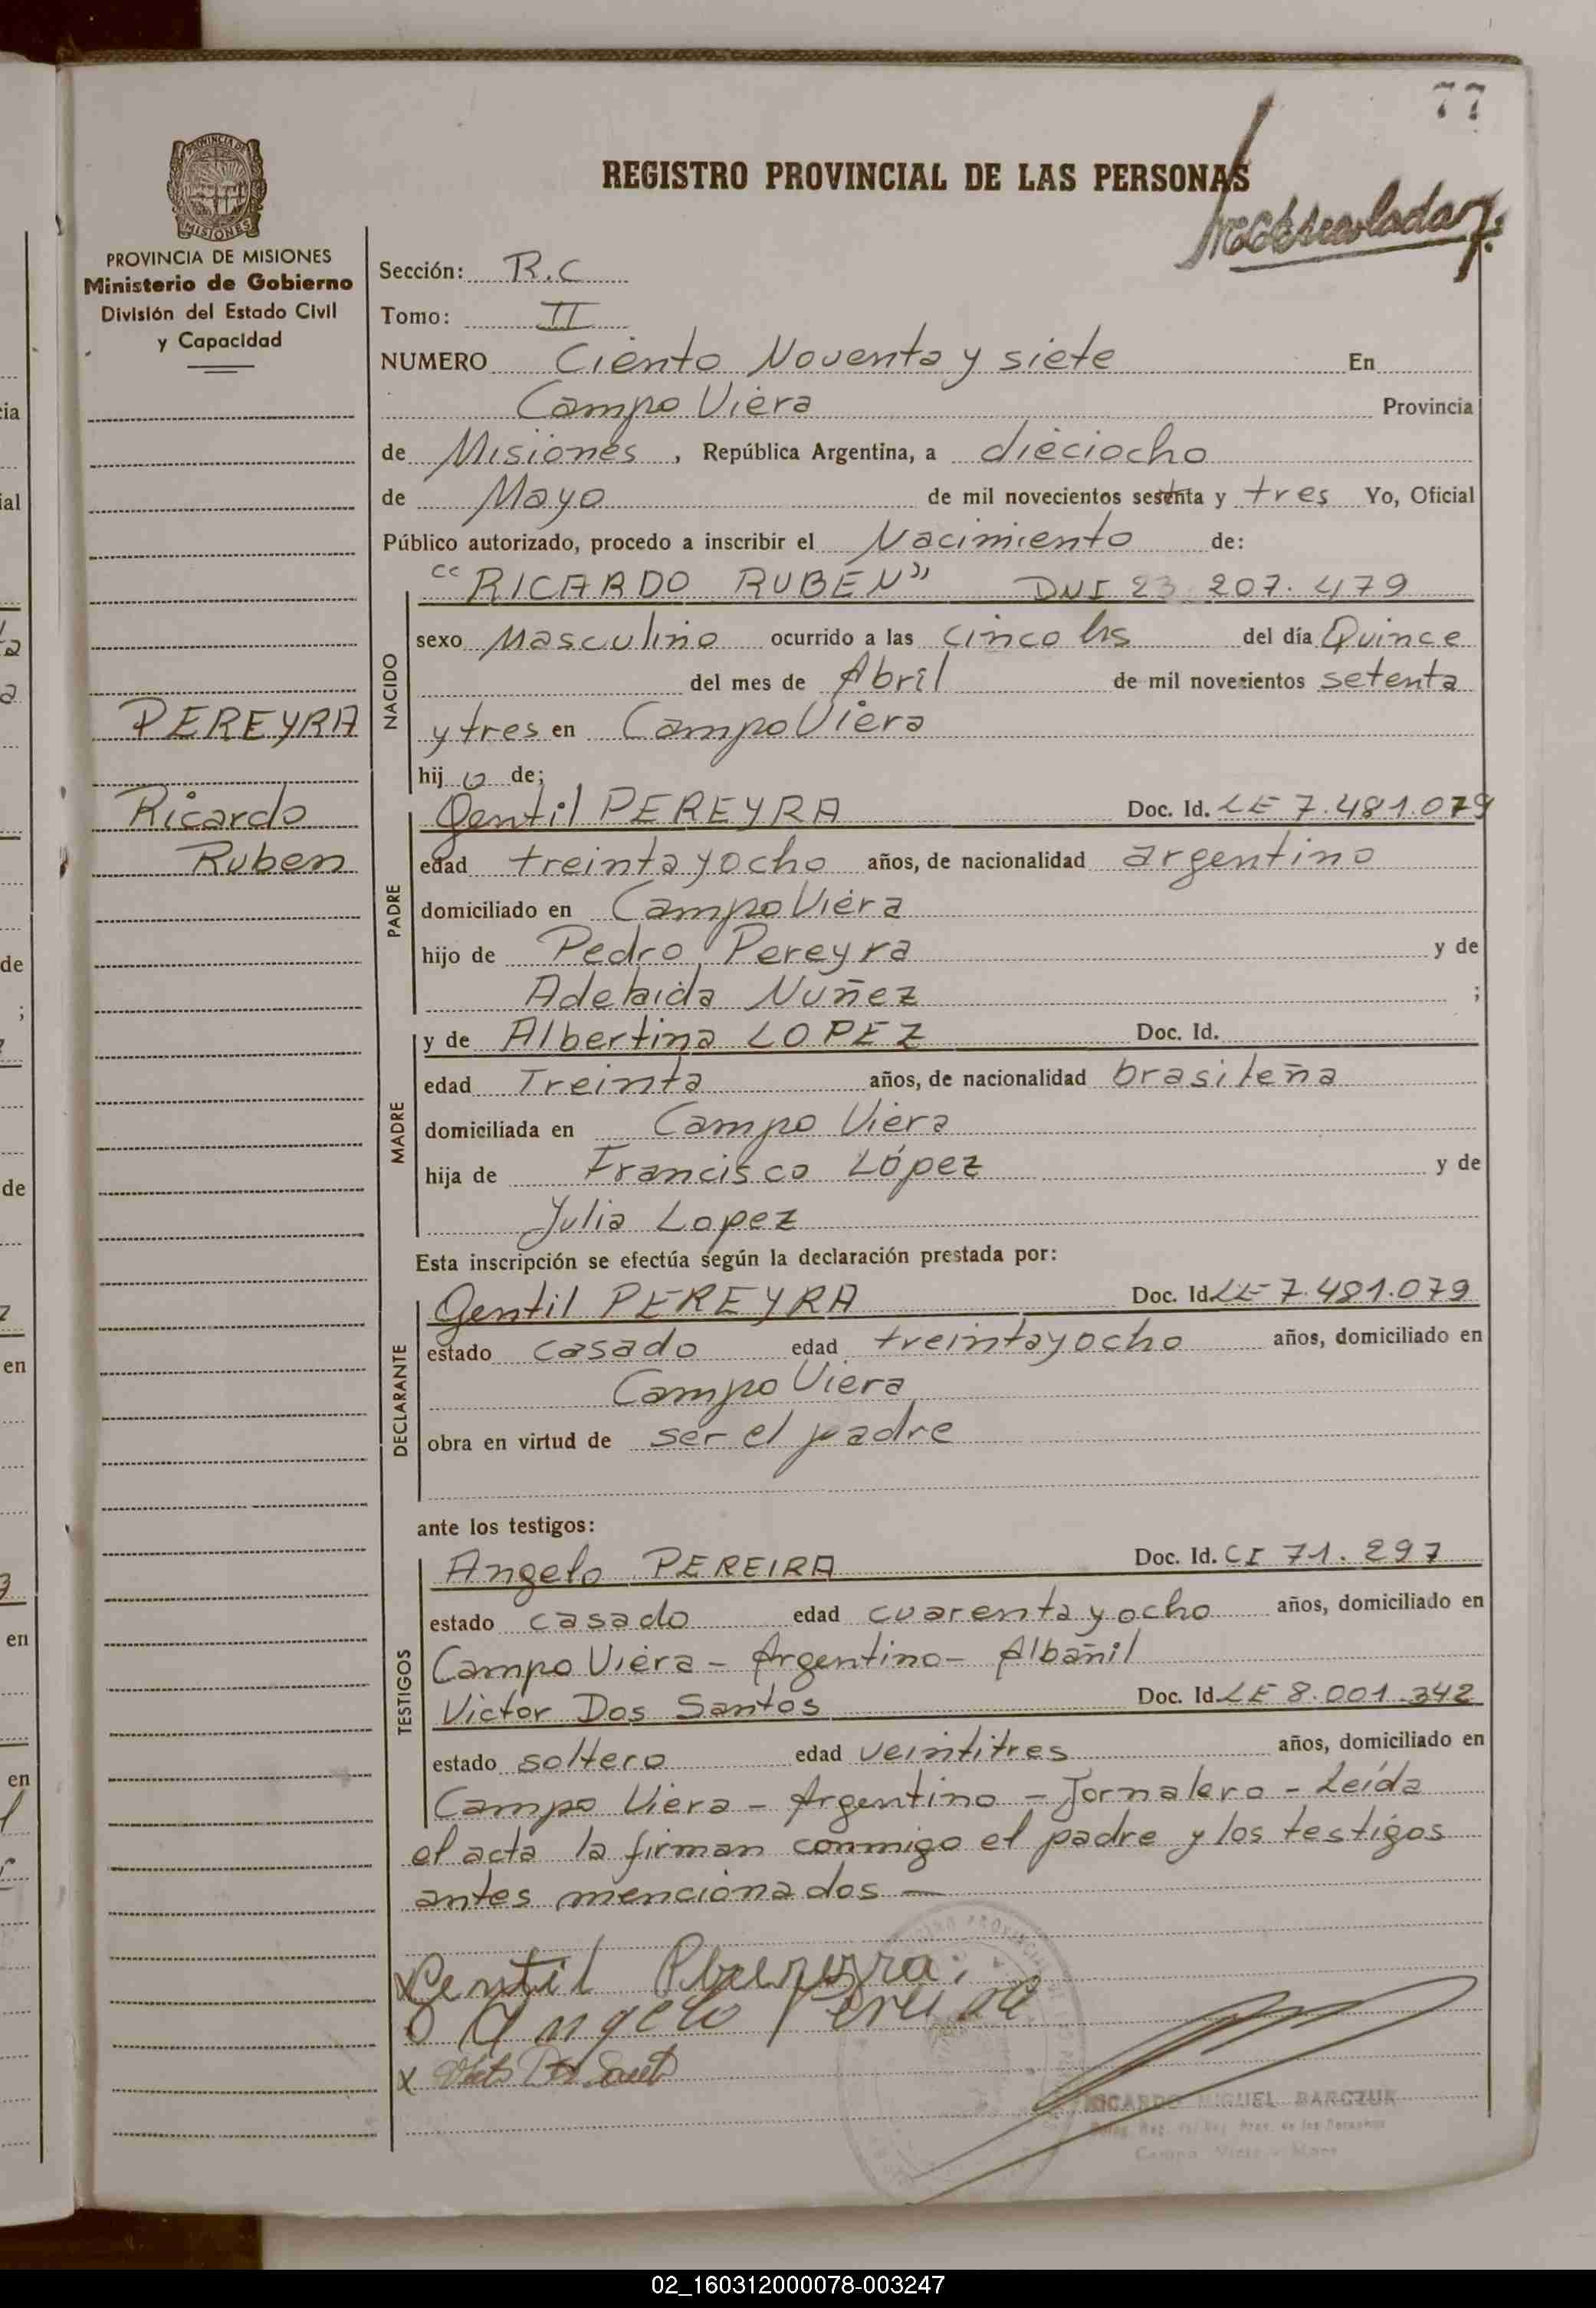 77
REGISTRO PROVINCIAL DE LAS PERSONAS
PROVINCIA DE
MISIONES
PROVINCIA DE MISIONES
Ministerio de Gobierno
División del Estado Civil
y Capacidad
PEREYRA
Ricardo
Ruben
Sección: R.C
Tomo: II
NUMERO Ciento Noventa y siete En
Campo Viera Provincia
de Misiones, República Argentina, a dieciocho
de Mayo de mil novecientos sesenta y tres Yo, Oficial
Público autorizado, procedo a inscribir el Nacimiento de:
"RICARDO RUBÉN" DNI 23 207.479
NACIDO
sexo Masculino ocurrido a las cinco hs del día Quince
del mes de Abril de mil novecientos setenta
y tres en Campo Viera
hij o de;
PADRE
Gentil PEREYRA Doc. Id. LE 7.481.079
edad treinta y ocho años, de nacionalidad argentino
domiciliado en Campo Viera
hijo de Pedro Pereyra y de
Adelaida Nuñez ;
MADRE
y de Albertina LOPEZ Doc. Id.
edad Treinta años, de nacionalidad brasileña
domiciliada en Campo Viera
hija de Francisco López y de
Julia Lopez
Esta inscripción se efectúa según la declaración prestada por:
DECLARANTE
Gentil PEREYRA Doc. Id. LE 7.481.079
estado casado edad treinta y ocho años, domiciliado en
Campo Viera
obra en virtud de ser el padre
ante los testigos:
TESTIGOS
Angelo PEREIRA Doc. Id. CI 71.297
estado casado edad cuarenta y ocho años, domiciliado en
Campo Viera - Argentino - Albañil
Victor Dos Santos Doc. Id. LE 8.001.342
estado soltero edad veintitres años, domiciliado en
Campo Viera - Argentino - Jornalero - Leída
el acta la firman conmigo el padre y los testigos
antes mencionados —
Gentil
Angelo
RICARDO MIGUEL BARCZUK
02_160312000078-003247